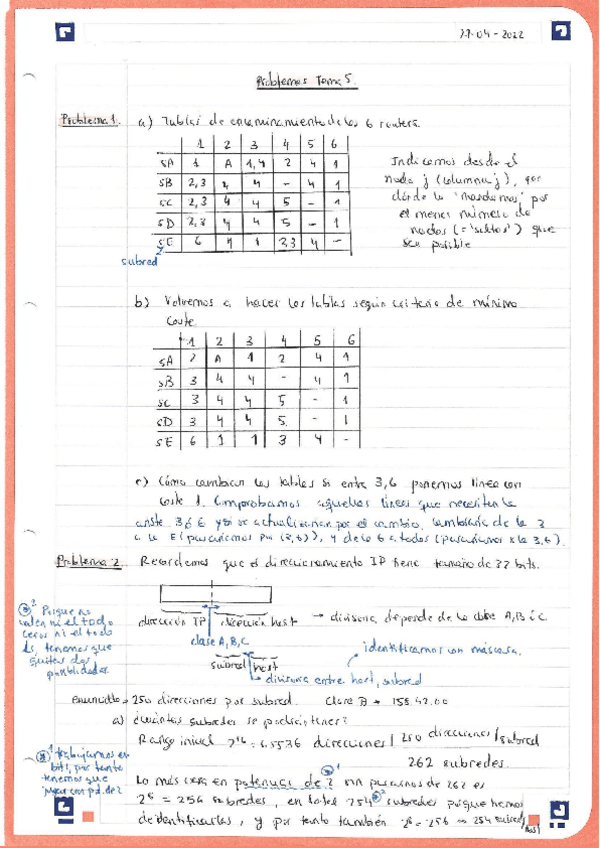 27-04-2022
Problemas Tema 5.
Problema 1. a) Tablas de encaminamiento de los 6 routers.
1 2 3 4 5 6
SA 1 A 1,4 2 4 1
SB 2,3 4 4 - 4 1
SC 2,3 4 4 5 - 1
SD 2,3 4 4 5 - 1
SE 6 1 1 2,3 4 -
subred
Indicamos desde el
nodo j (columna j), por
dónde lo "mandamos" por
el menor número de
nodos (= "saltos") que
sea posible
b) Volvemos a hacer las tablas según criterio de mínimo
coste.
1 2 3 4 5 6
SA 2 A 1 2 4 1
SB 3 4 4 - 4 1
SC 3 4 4 5 - 1
SD 3 4 4 5 - 1
SE 6 1 1 3 4 -
c) Cómo cambian las tablas si entre 3,6 ponemos línea con
coste 1. Comprobamos aquellas líneas que necesiten la
y si se actualizarían por el cambio. Cambiaría de la 3
a la E (pasaríamos por (3,6)), y de la 6 a todos (pasaríamos x la 3,6).
Problema 2. Recordemos que el direccionamiento IP tiene tamaño de 32 bits.
dirección IP dirección host → divisoria depende de la clase A, B ó C.
clase A,B,C
subred host
identificamos con máscara.
divisoria entre host, subred
2 Porque no
valen ni el todo
ceros ni el todo
1s, tenemos que
quitar dos
posibilidades.
Enunciado → 250 direcciones por subred. Clase B → 158.42.00
a) ¿Cuántas subredes se podrían tener?
Rango inicial 2^16 = 65536 direcciones / 250 direcciones/subred
262 subredes.
1 trabajamos en
bits, por tanto
tenemos que
jugar con pot. de 2
Lo más cerca en potencias de 2 sin pasarnos de 262 es
2^8 = 256 subredes, en total 254 subredes porque hemos
de identificarlas, y por tanto también 2^8 = 256 → 254 subredes